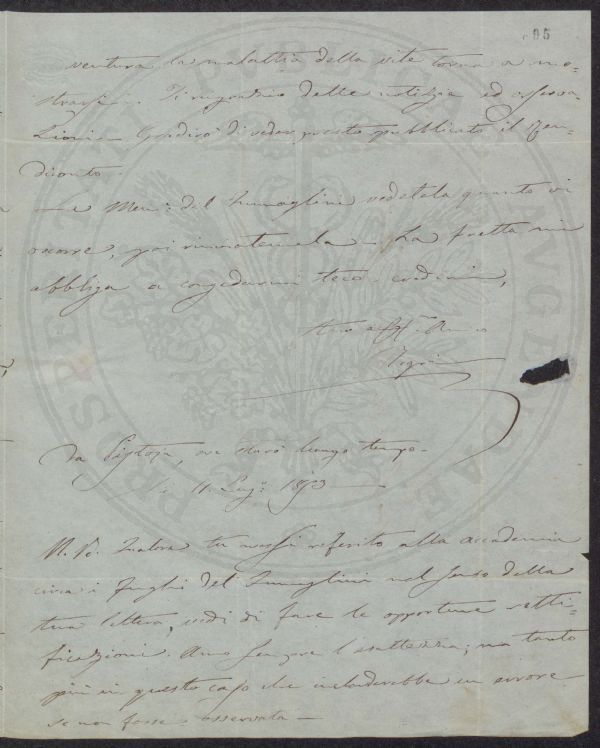 95
ventura la malattia della vite torna a mo-
strarsi. Ti ringrazio delle notizie ed osserva-
zioni. Gradirò di veder presto pubblicato il Ren-
diconto.
La Mem: del Fumaglini vedetela quanto vi
occorre, poi rinviatemela. La fretta mi
obbliga a congedarmi teco. credimi,
tuo aff. Amico
da Pistoja, ove starò lungo tempo.
li 11 Lug. 1853
N.B. Qualora tu avessi referito alla accademia
circa i funghi del Fumaglini nel senso della
tua lettera, vedi di fare le opportune retti-
ficazioni. Amo sempre l'esattezza; ma tanto
più in questo caso che includerebbe un errore
se non fosse osservata —